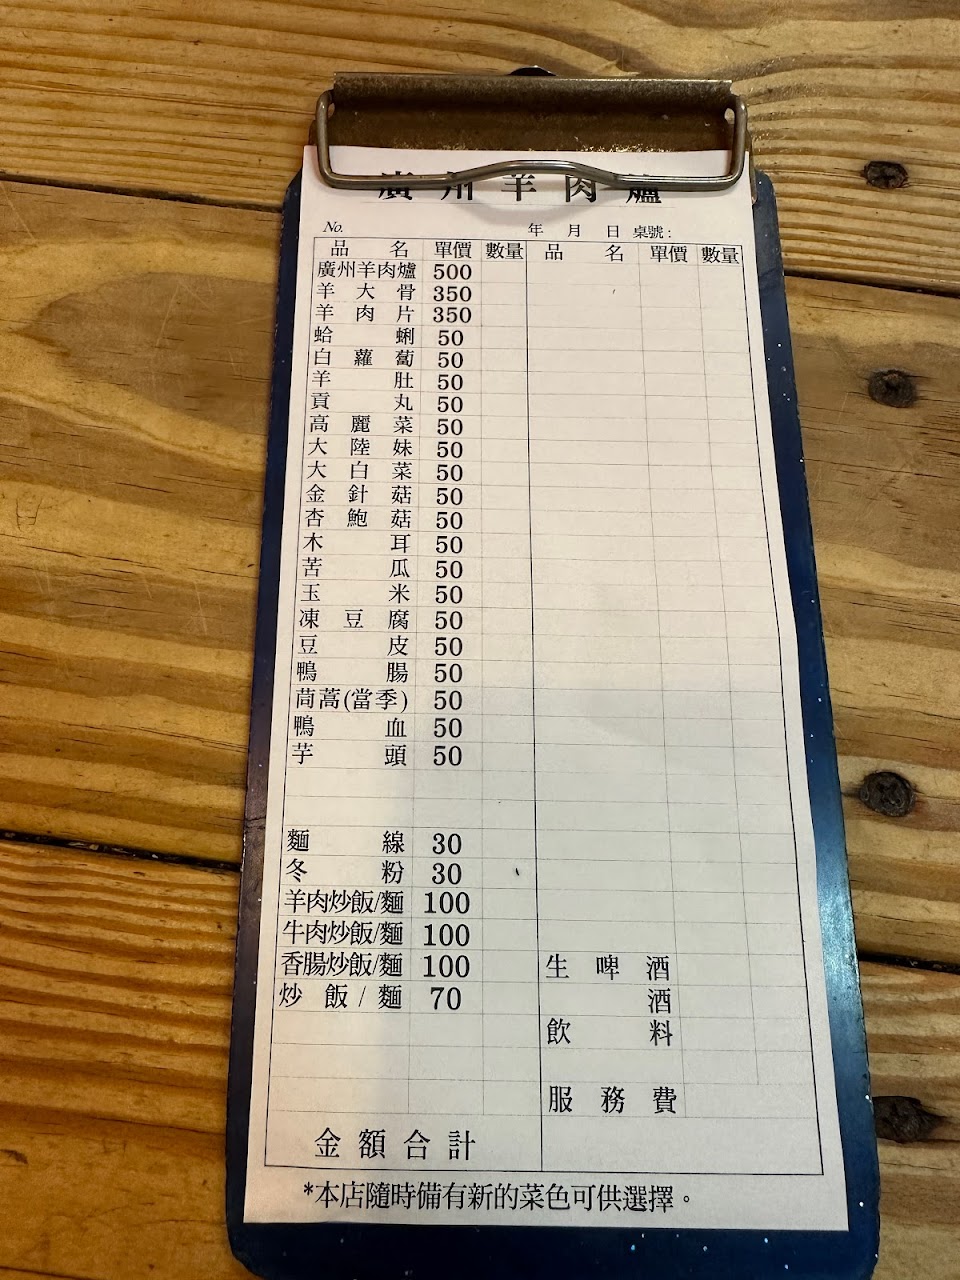 廣州羊肉爐
No. 年 月 日 桌號:
品名 單價 數量 品名 單價 數量
廣州羊肉爐 500
羊大骨 350
羊肉片 350
蛤蜊 50
白蘿蔔 50
羊肚 50
貢丸 50
高麗菜 50
大陸妹 50
大白菜 50
金針菇 50
杏鮑菇 50
木耳 50
苦瓜 50
玉米 50
凍豆腐 50
豆皮 50
鴨腸 50
茼蒿(當季) 50
鴨血 50
芋頭 50
麵線 30
冬粉 30
羊肉炒飯/麵 100
牛肉炒飯/麵 100
香腸炒飯/麵 100 生啤酒
炒飯/麵 70 酒
飲料
服務費
金額合計
*本店隨時備有新的菜色可供選擇。